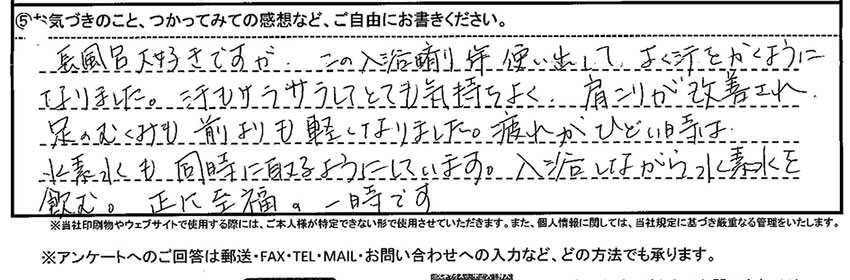 ⑤お気づきのこと、つかってみての感想など、ご自由にお書きください。
長風呂大好きですが、この入浴剤 使い出して、よく汗をかくように
なりました。汗もサラサラしてとても気持ちよく、肩こりが改善され、
足のむくみも前よりも軽くなりました。疲れがひどい時は
水素水も同時に取るようにしています。入浴しながら水素水を
飲む。正に至福の一時です
※当社印刷物やウェブサイトで使用する際には、ご本人様が特定できない形で使用させていただきます。また、個人情報に関しては、当社規定に基づき厳重なる管理をいたします。
※アンケートへのご回答は郵送・FAX・TEL・MAIL・お問い合わせへの入力など、どの方法でも承ります。